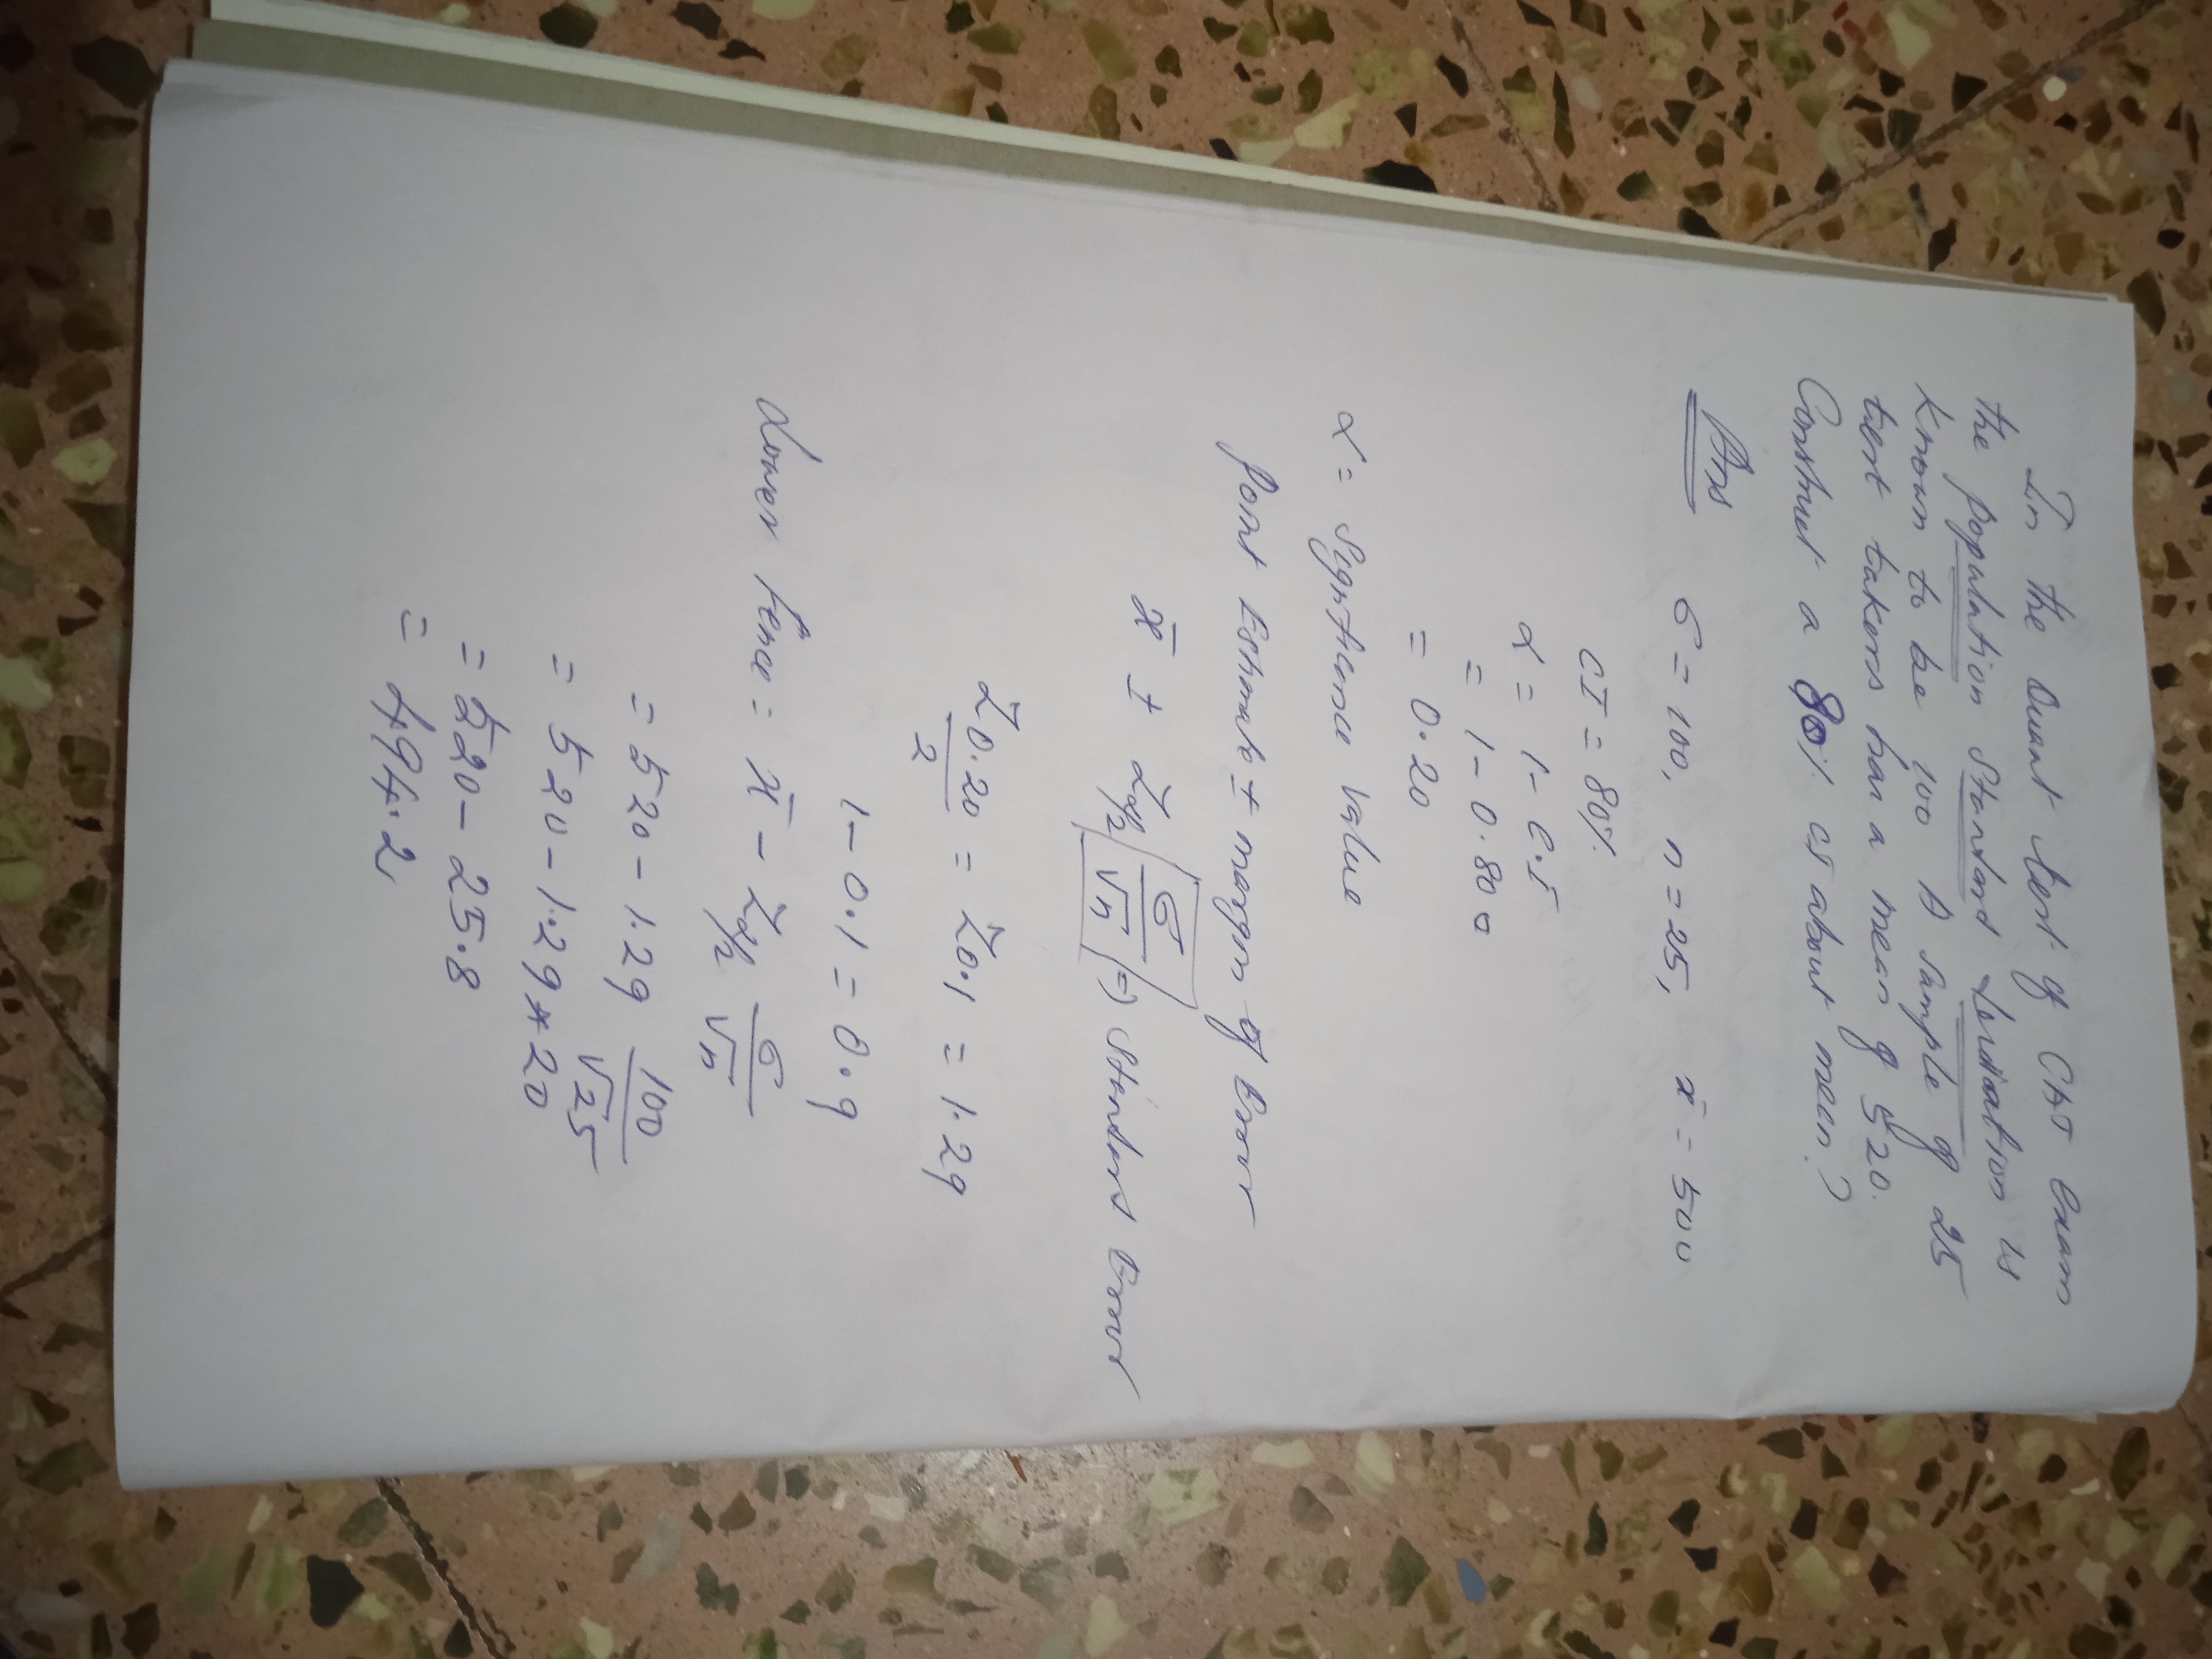 In the Quant test of CAT exam
the population Standard deviation is
known to be 100 A sample of 25
test takers has a mean of 520.
Construct a 80% CI about mean?
Ans
σ = 100, n = 25, x̄ = 500
CI = 80%
α = 1 - C.I
= 1 - 0.80
= 0.20
α = Significance value
Point Estimate ± margin of Error
x̄ ± Zα/2 σ/√n ⇒ Standard Error
Z0.20/2 = Z0.1 = 1.29
1 - 0.1 = 0.9
Lower Fence = x̄ - Zα/2 σ/√n
= 520 - 1.29 100/√25
= 520 - 1.29 * 20
= 520 - 25.8
= 494.2